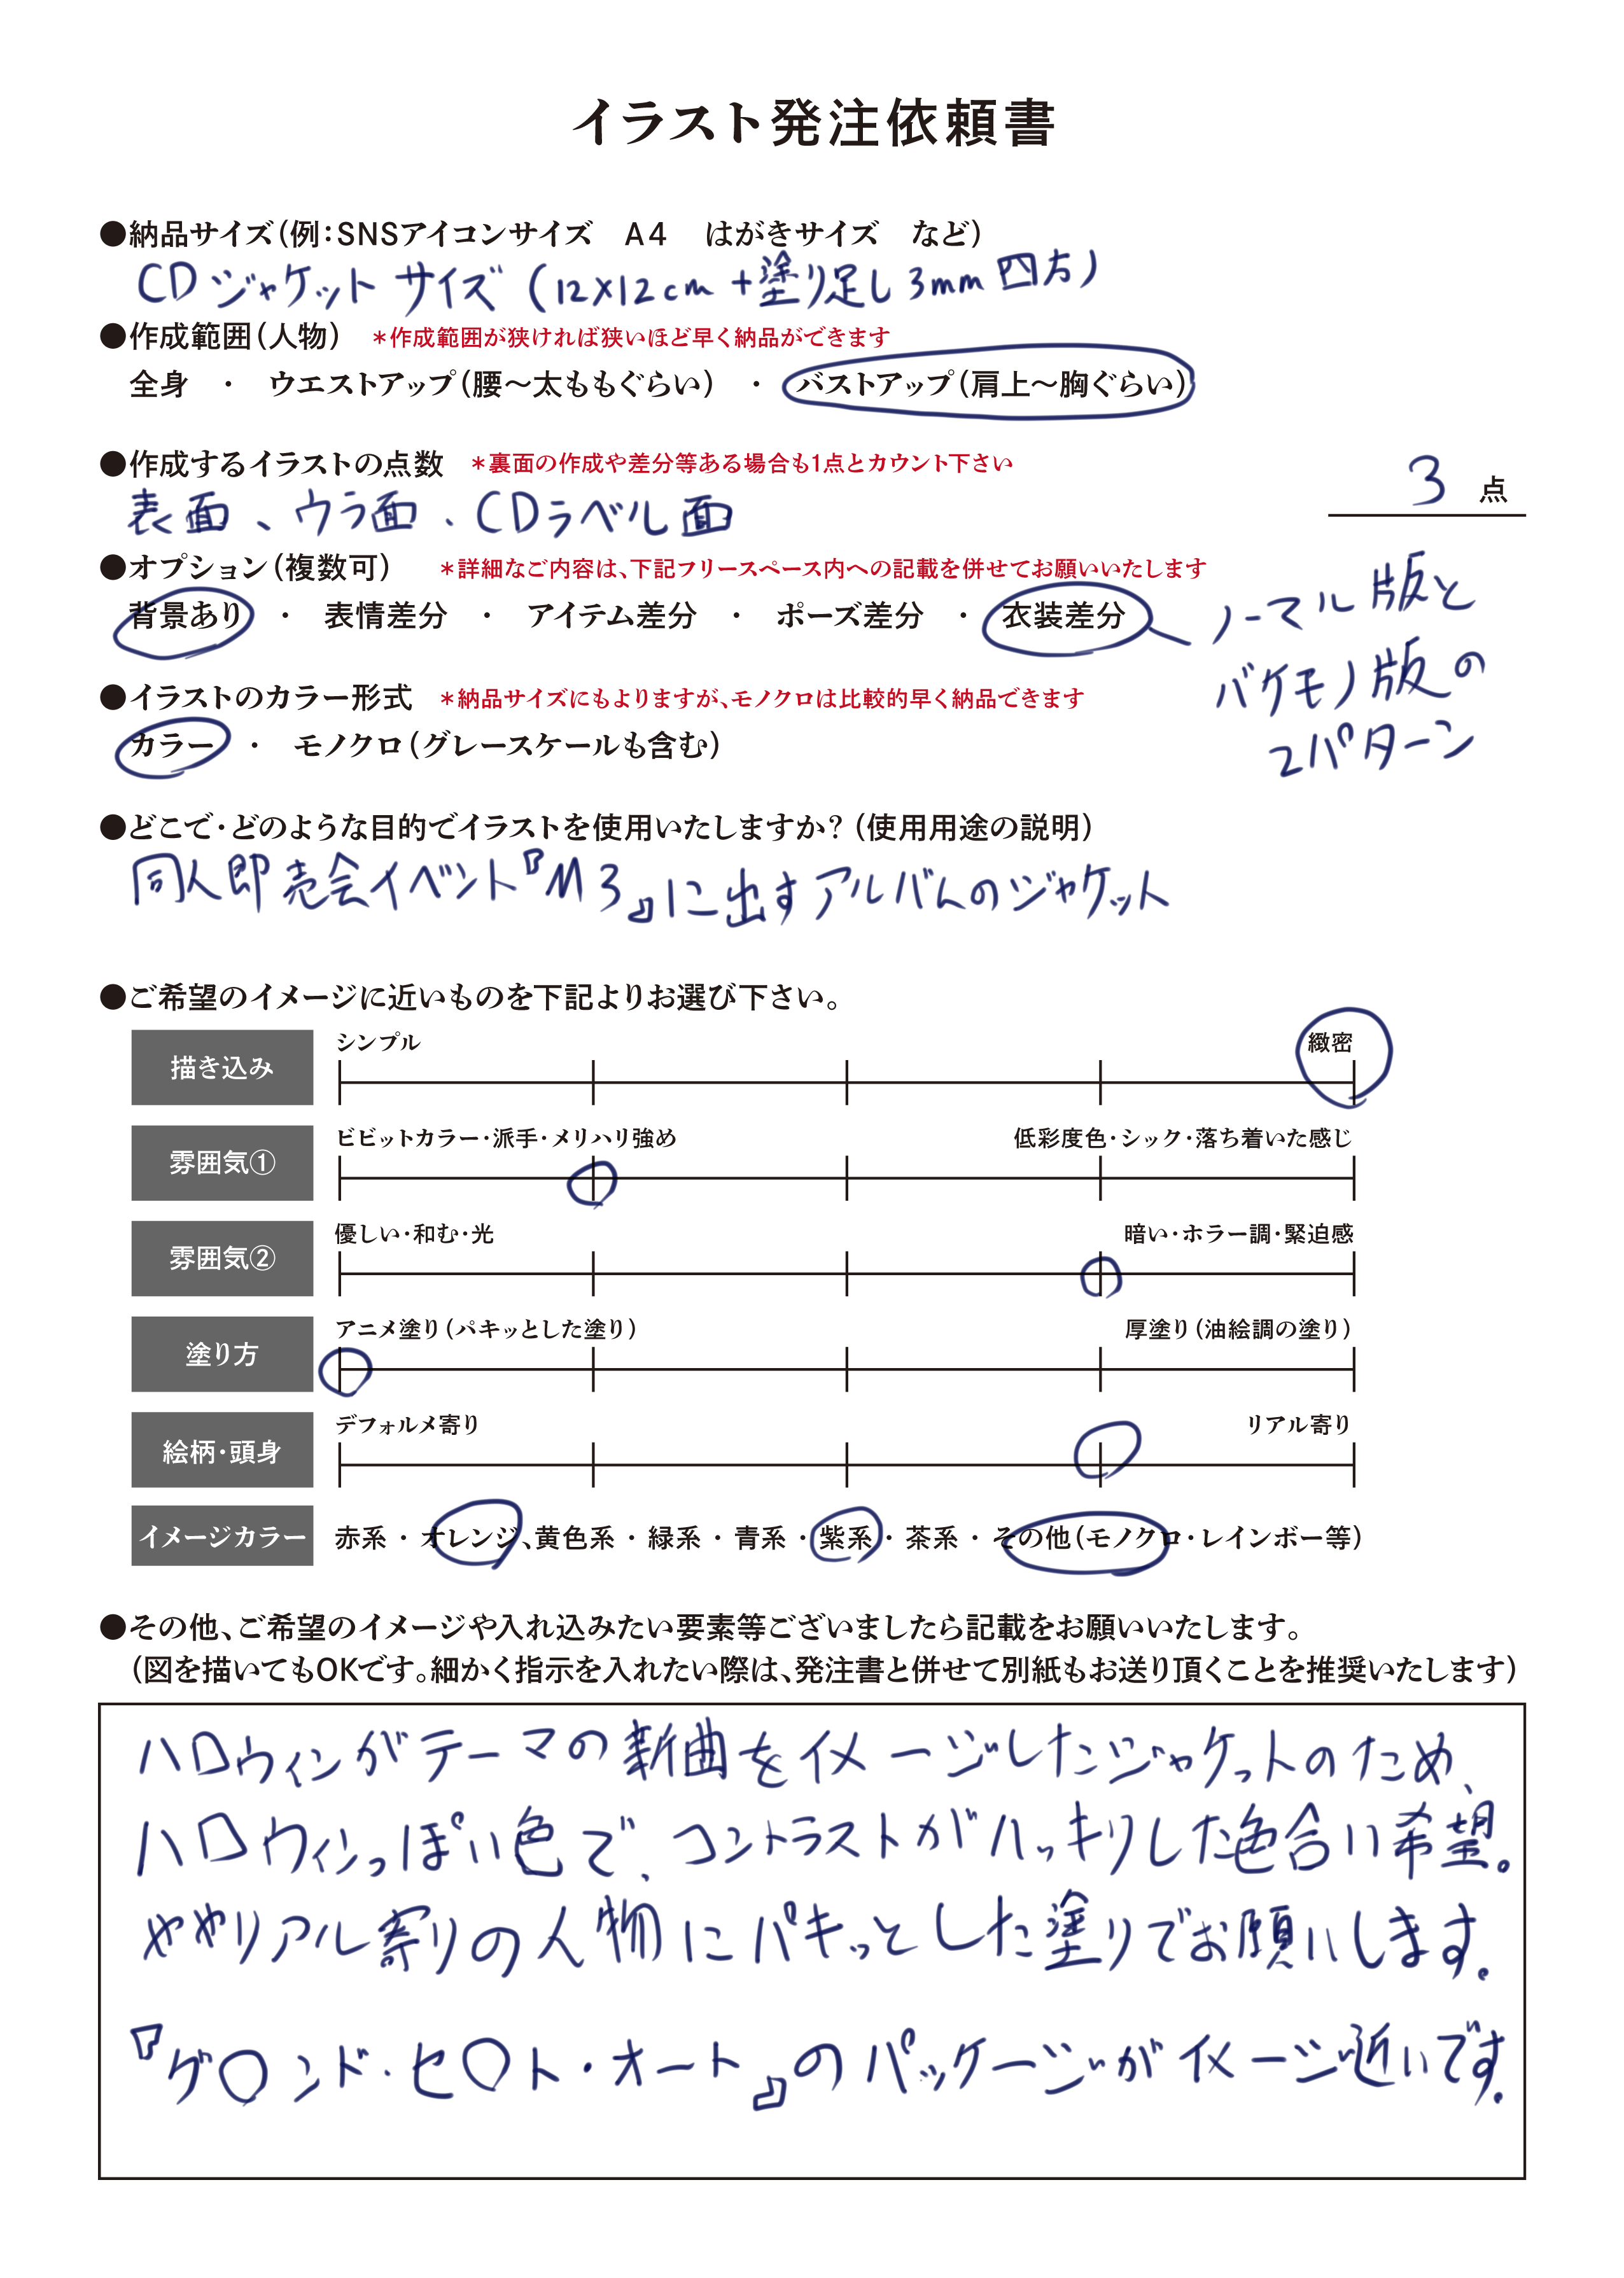 イラスト発注依頼書
●納品サイズ(例:SNSアイコンサイズ　A4　はがきサイズ　など)
CDジャケットサイズ(12×12cm+塗り足し3mm四方)
●作成範囲(人物)　*作成範囲が狭ければ狭いほど早く納品ができます
全身　・　ウエストアップ(腰〜太ももぐらい)　・　バストアップ(肩上〜胸ぐらい)
●作成するイラストの点数　*裏面の作成や差分等ある場合も1点とカウント下さい
3 点
表面、ウラ面、CDラベル面
●オプション(複数可)　*詳細なご内容は、下記フリースペース内への記載を併せてお願いいたします
背景あり　・　表情差分　・　アイテム差分　・　ポーズ差分　・　衣装差分
ノーマル版と
バケモノ版の
2パターン
●イラストのカラー形式　*納品サイズにもよりますが、モノクロは比較的早く納品できます
カラー　・　モノクロ(グレースケールも含む)
●どこで・どのような目的でイラストを使用いたしますか?(使用用途の説明)
同人即売会イベント『M3』に出すアルバムのジャケット
●ご希望のイメージに近いものを下記よりお選び下さい。
描き込み　シンプル　緻密
雰囲気①　ビビットカラー・派手・メリハリ強め　低彩度色・シック・落ち着いた感じ
雰囲気②　優しい・和む・光　暗い・ホラー調・緊迫感
塗り方　アニメ塗り(パキッとした塗り)　厚塗り(油絵調の塗り)
絵柄・頭身　デフォルメ寄り　リアル寄り
イメージカラー　赤系・オレンジ、黄色系・緑系・青系・紫系・茶系・その他(モノクロ・レインボー等)
●その他、ご希望のイメージや入れ込みたい要素等ございましたら記載をお願いいたします。
(図を描いてもOKです。細かく指示を入れたい際は、発注書と併せて別紙もお送り頂くことを推奨いたします)
ハロウィンがテーマの新曲をイメージしたジャケットのため、
ハロウィンっぽい色で、コントラストがハッキリした色合い希望。
ややリアル寄りの人物にパキッとした塗りでお願いします。
『グ〇ンド・セ〇ト・オート』のパッケージがイメージ近いです。